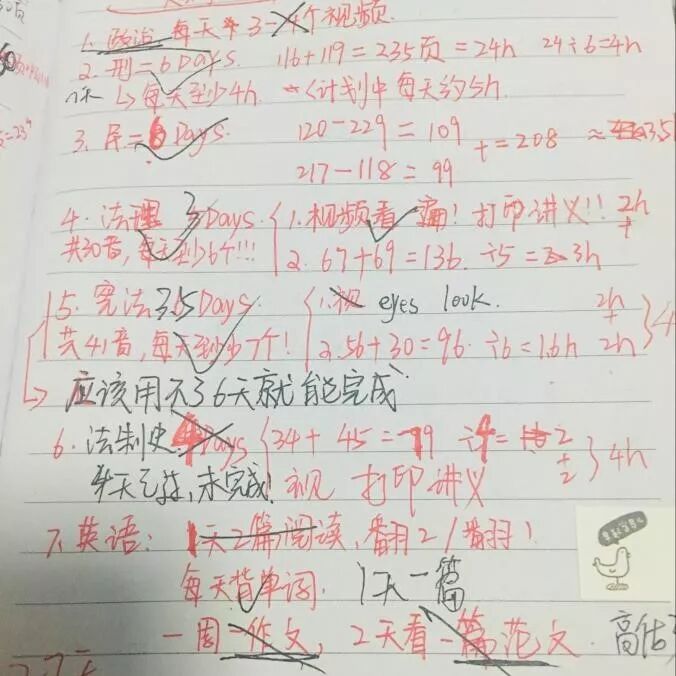 1. 政治 每天 3-4个视频.
2. 刑=6 Days. 116+119=235页=24h 24÷6=4h
休 ↳每天至少4h. 计划中每天约5h.
3. 民=6 Days. 120-229=109
217-118=99 +=208 ≈ 3.5
4. 法理 3 Days { 1. 视频看一遍! 打印讲义!! 2h
共30音, 每天至少6个!!! 2. 67+69=136. ÷5= 3h
5. 宪法 3.5 Days. { 1. 视 eyes look. 2h
共41音, 每天到少7个! 2. 56+30=96. ÷6=1.6h 2h } 4
应该用不了6天就能完成.
6. 法制史 4 Days { 34+45=79 ÷4= 2 +2 } 4h
4天已达, 未完成! 视 打印讲义
7. 英语: 1天2篇阅读, 翻2/翻!
每天背单词. 1天一篇
一周一作文, 2天看一篇范文. 高估